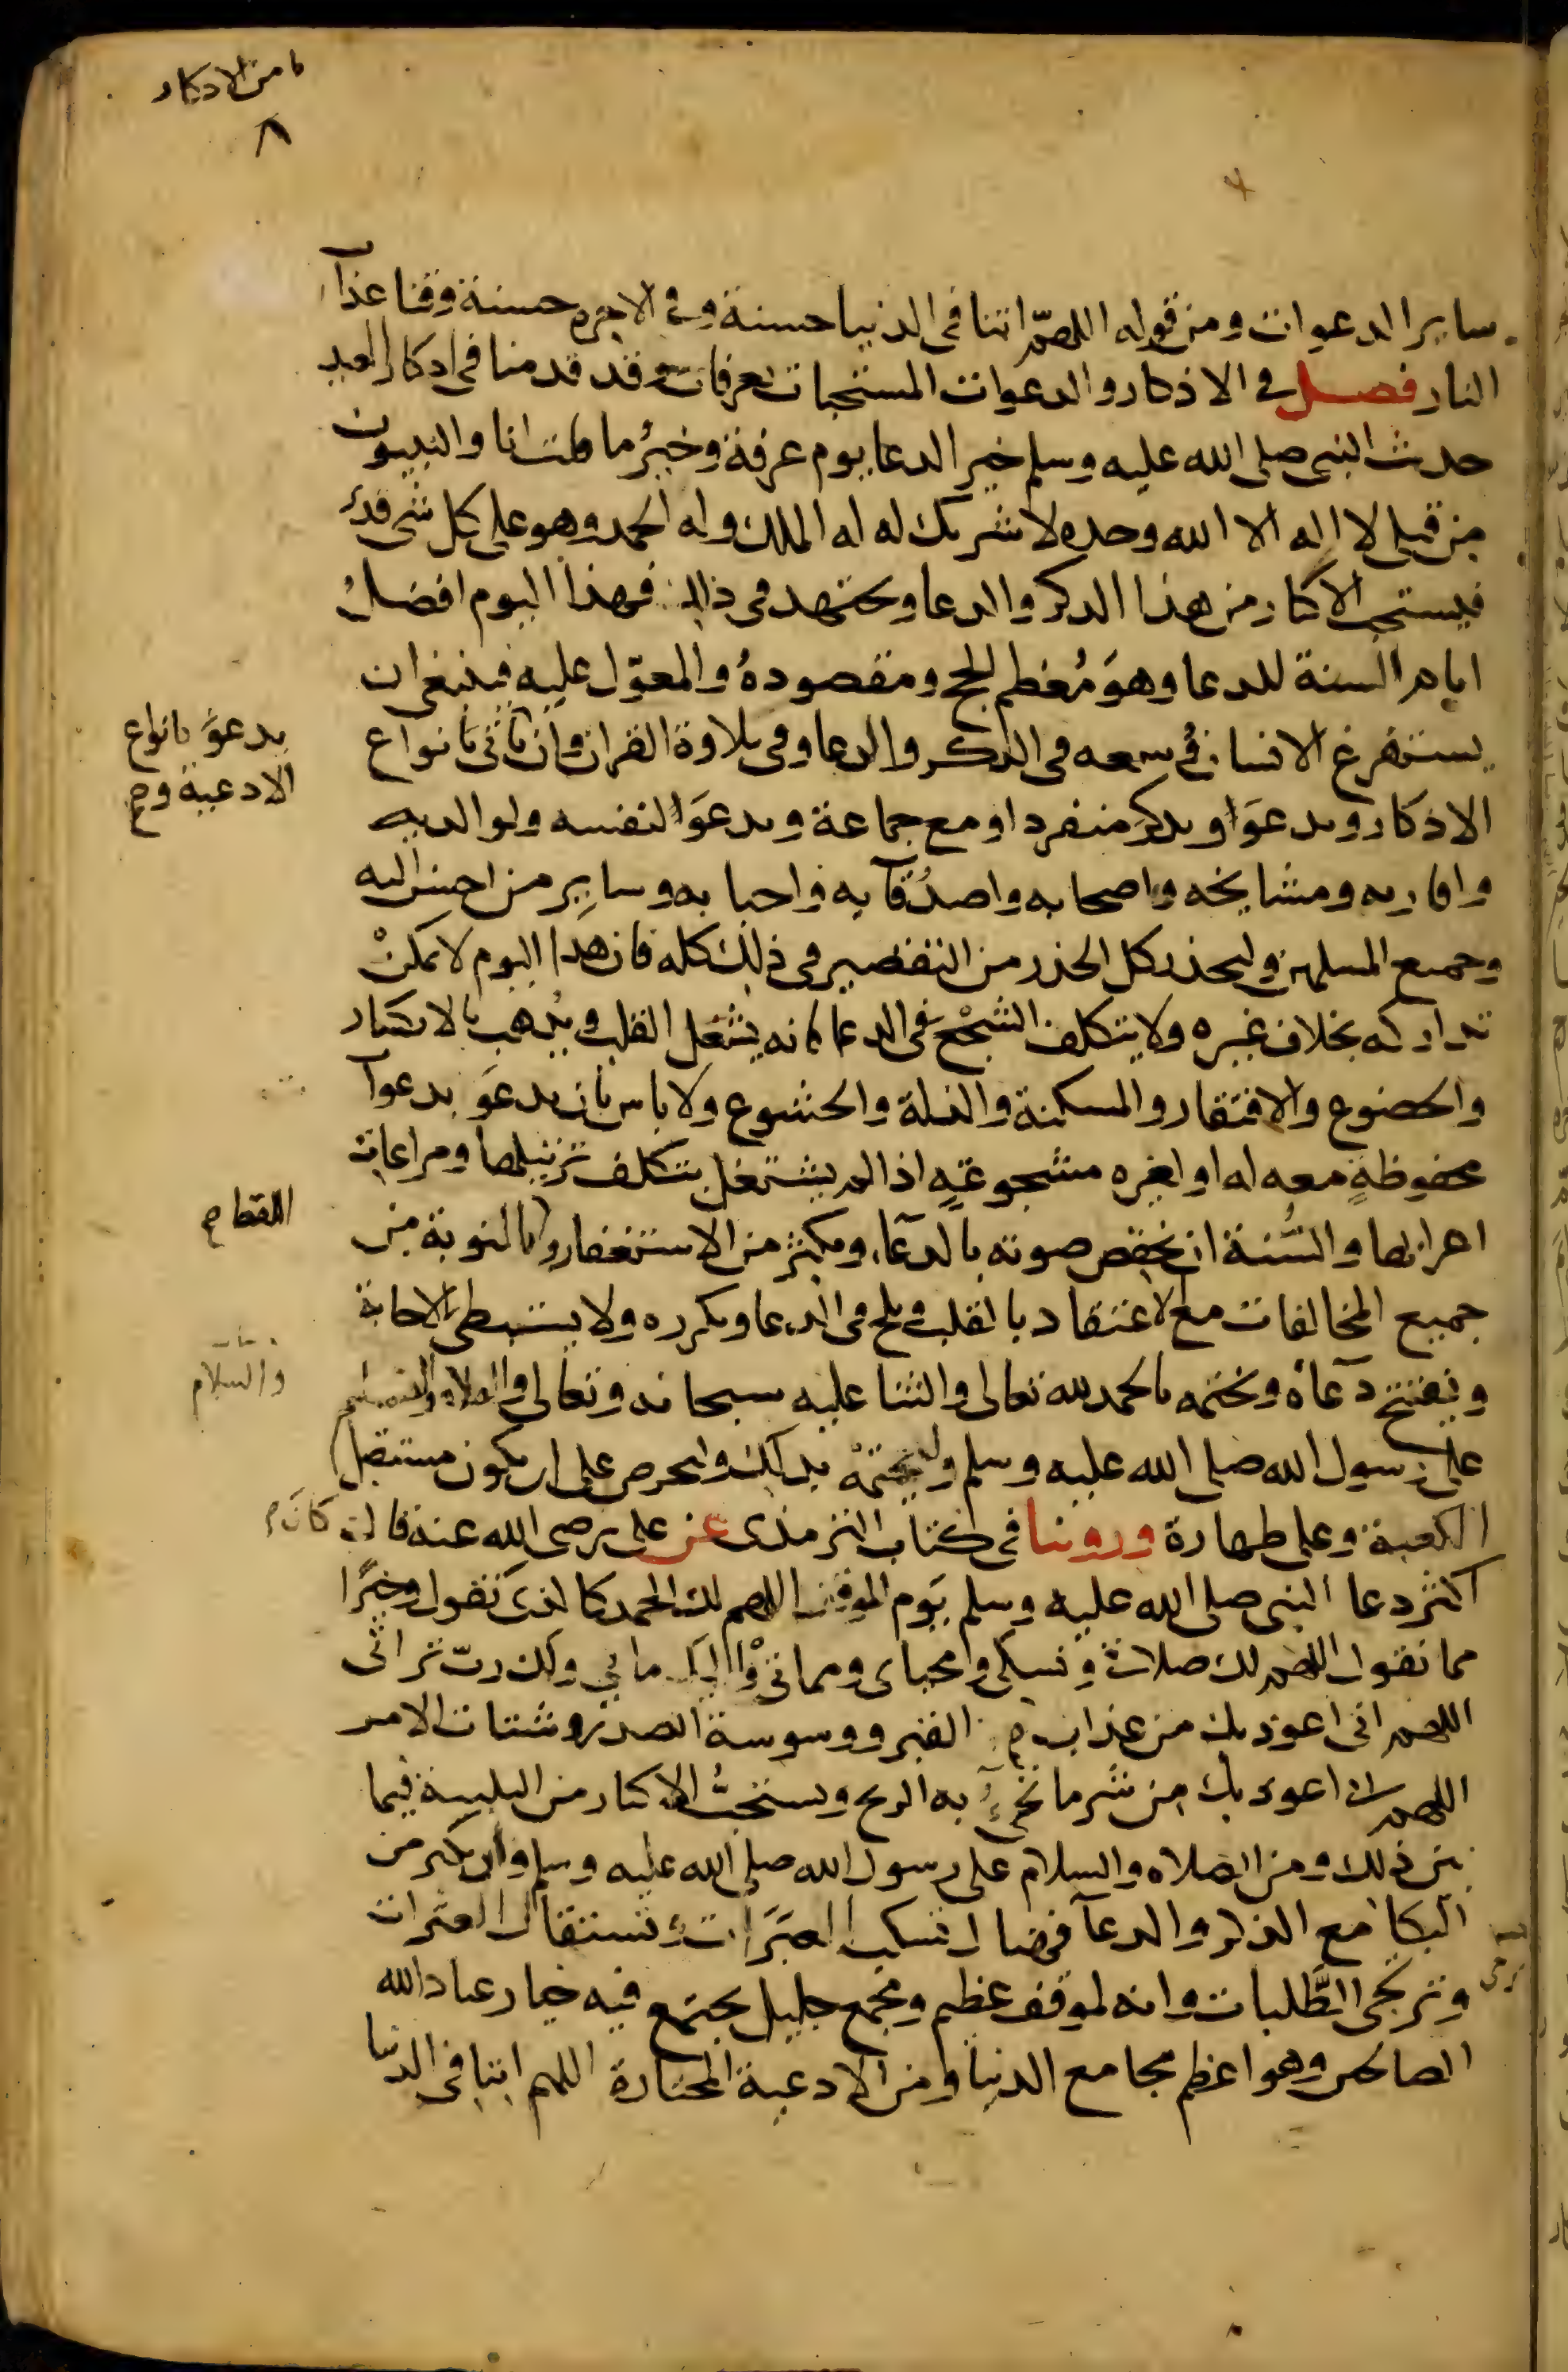 ما من الاذكار
٨
ساير الدعوات ومن قوله اللهم اتنا في الدنيا حسنة وفي الاخرة حسنة وقنا عذاب
النار فصل في الاذكار والدعوات المستحبات بعرفات وقد قدمنا في اذكار العيد
حديث النبي صلى الله عليه وسلم خير الدعا يوم عرفة وخيرُ ما قلت انا والنبيون
من قبلي لا اله الا الله وحده لا شريك له له الملك وله الحمد وهو على كل شي قدير
فيستحب الاكثار من هذا الذكر والدعا ويجتهد في ذلك فهذا اليوم افضلُ
ايام السنة للدعا وهوَ مُعظم الحج ومقصودهُ والمعوّل عليه فينبغي ان
يستفرغ الانسان وسعه في الذكر والدعا وفي تلاوة القران وان ياتي بانواع
يدعوَ بانواع
الادعية و صح
الاذكار ويدعوَا ويذكرَ منفردا او مع جماعة ويدعوَا لنفسه ولوالديه
واقاربه ومشايخه واصحابه واصدُقآيه واحبابه وسايرِ من احسن اليه
وجميع المسلمين وليحذر كل الحذر من التقصير في ذلك كله فان هذا اليوم لا يمكنْ
تداركه بخلاف غيره ولا يتكلف السجْعَ في الدعا فانه يشغل القلب ويُذهب الانكسار
والخضوع والافتقار والمسكنة والذلة والخشوع ولا باس بان يدعوَ بدعوات
محفوظةٍ معه له او لغيره مسجوعةٍ اذا لم يشتغل بتكلف ترتيبها ومراعات
اعرابها والسُّنة ان يخفض صوته بالدعآ، ويكثر من الاستغفار والتوبة من
اللفظ صح
جميع المخالفات مع الاعتقاد بالقلب ويلح في الدعا ويكرره ولا يستبطي الاجابة
ويفتتح دعآه ويختمه بالحمد لله تعالى والثنا عليه سبحانه وتعالى والصلاه والتسليم
والسلام
على رسول الله صلى الله عليه وسلم وليختمْه بذلك وليحرص على ان يكون مستقبل
الكعبة وعلى طهارة وروينا في كتاب الترمذى عن على رضي الله عنه قال
كانَ صح
اكثر دعا النبي صلى الله عليه وسلم يَوم الموقف اللهم لك الحمد كالذى نقول وخيرًا
مما نقول اللهم لك صلاتي ونسكي ومحياى ومماتي واليك مابي ولك ربّ تراثي
اللهم اني اعوذ بك من عذاب القبر ووسوسة الصدر وشتات الامر
اللهم اني اعوذ بك من شر ما تجيُ به الريح ويستحبُّ الاكثار من التلبية فيما
بين ذلك ومن الصلاه والسلام على رسول الله صلى الله عليه وسلم وان يكثر من
البكا مع الذكر والدعآ فهنالك تسكب العبَرَات وتستقال العثرات
وترتجى الطَّلبات وانه لموقف عظيم ومجمع جليل يجتمع فيه خيار عباد الله
الصالحين وهو اعظم مجامع الدنيا ومن الادعية المختارة اللهم اتنا في الدنيا